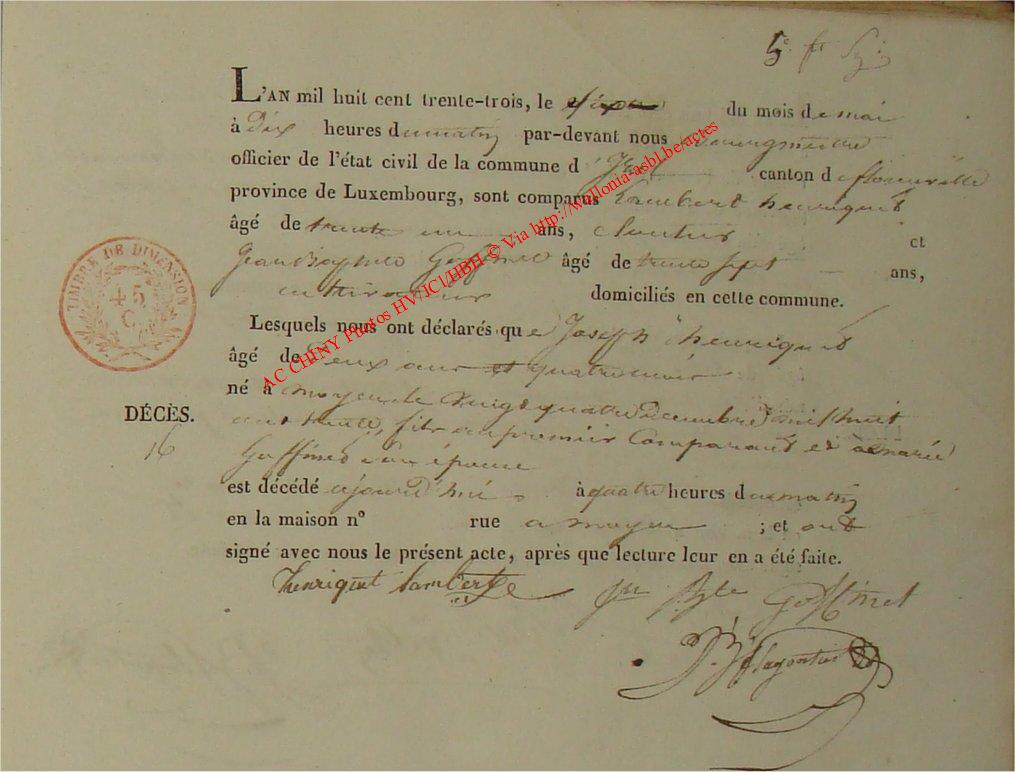 5e
L'AN mil huit cent trente-trois, le du mois de mai
à dix heures du matin par-devant nous Bourgmestre
officier de l'état civil de la commune d' canton de florenville
province de Luxembourg, sont comparus Lambert henriquet
âgé de trente un ans, cloutier et
Jean Baptiste Goffinet âgé de trente sept ans,
cultivateur domiciliés en cette commune.
Lesquels nous ont déclarés que Joseph henriquet
âgé de deux ans et quatre mois
né à moyen le vingt quatre decembre mil huit
cent trente, fils du premier Comparant et de marie
Goffinet son épouse
est décédé aujourd'hui à quatre heures du matin
en la maison nº rue a moyen ; et ont
signé avec nous le présent acte, après que lecture leur en a été faite.
DÉCÈS.
16
TIMBRE DE DIMENSION
45
C.
AC CHINY Photos HV/JCI/HBH © Via http://wallonia-asbl.be/actes
henriquet Lambert
Jn Bte Goffinet